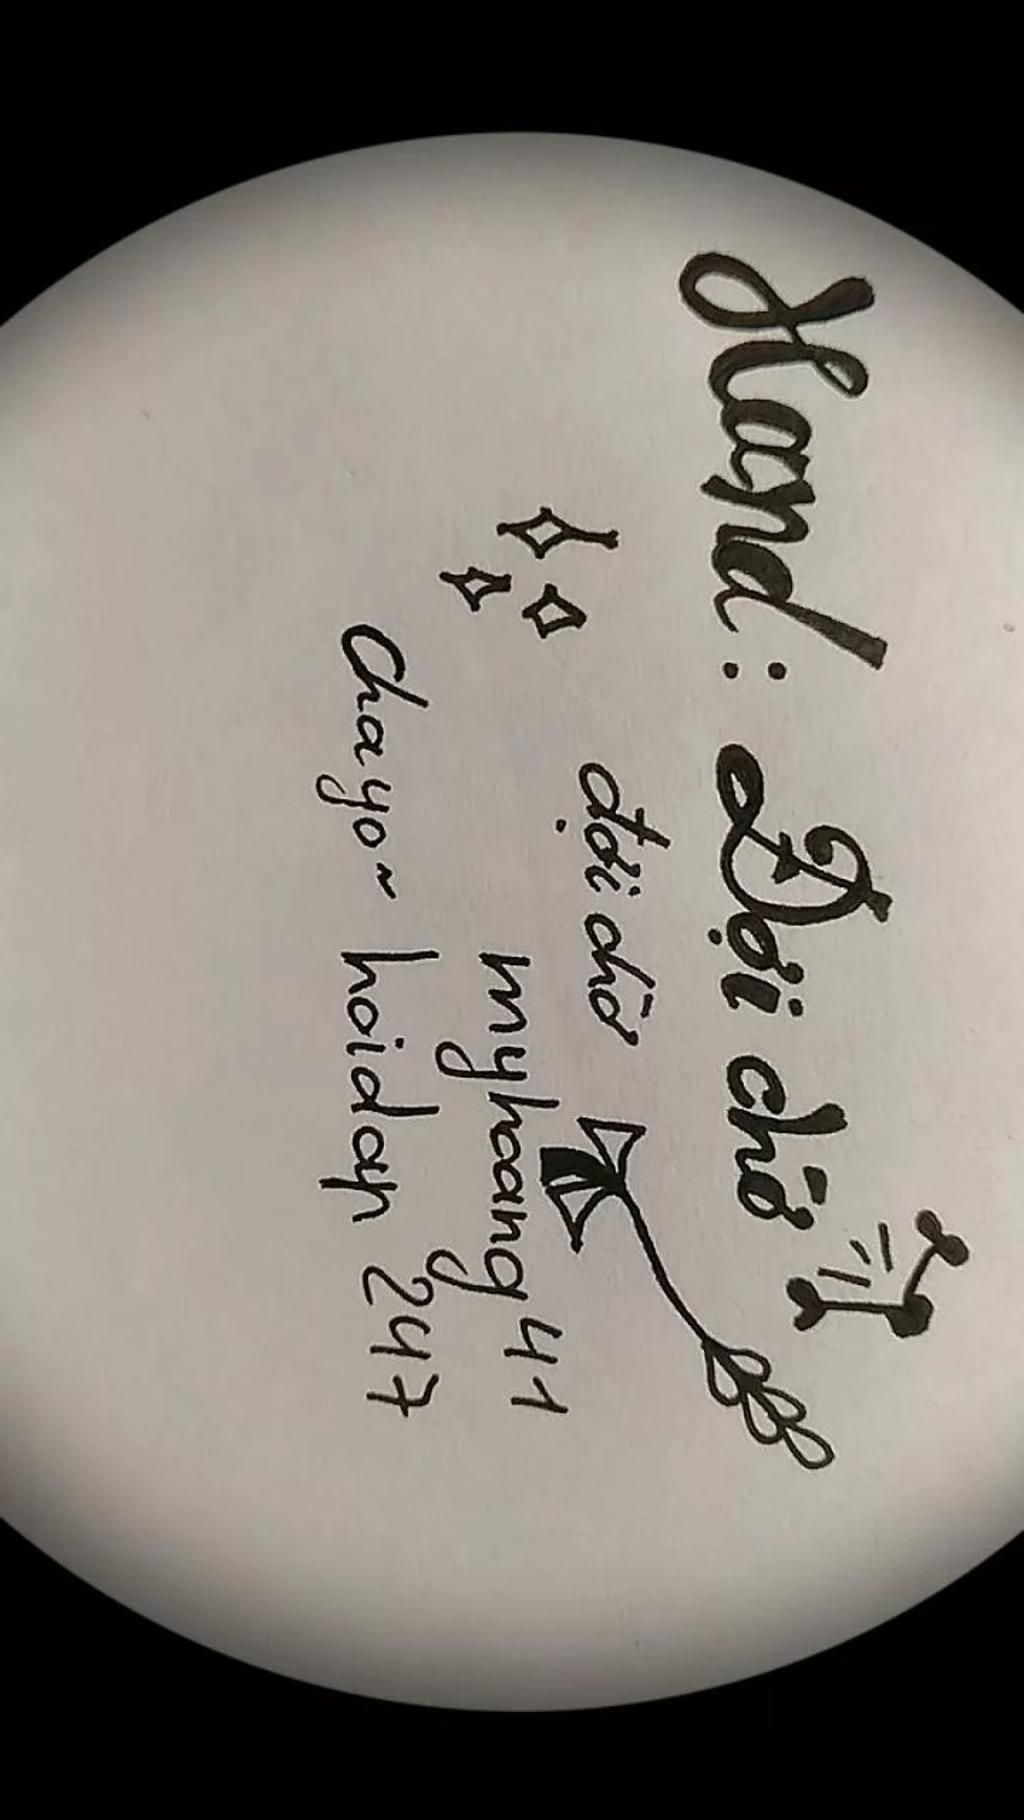 Hand: Đợi chờ
đợi chờ
myhoang41
chayo~ hoidap247